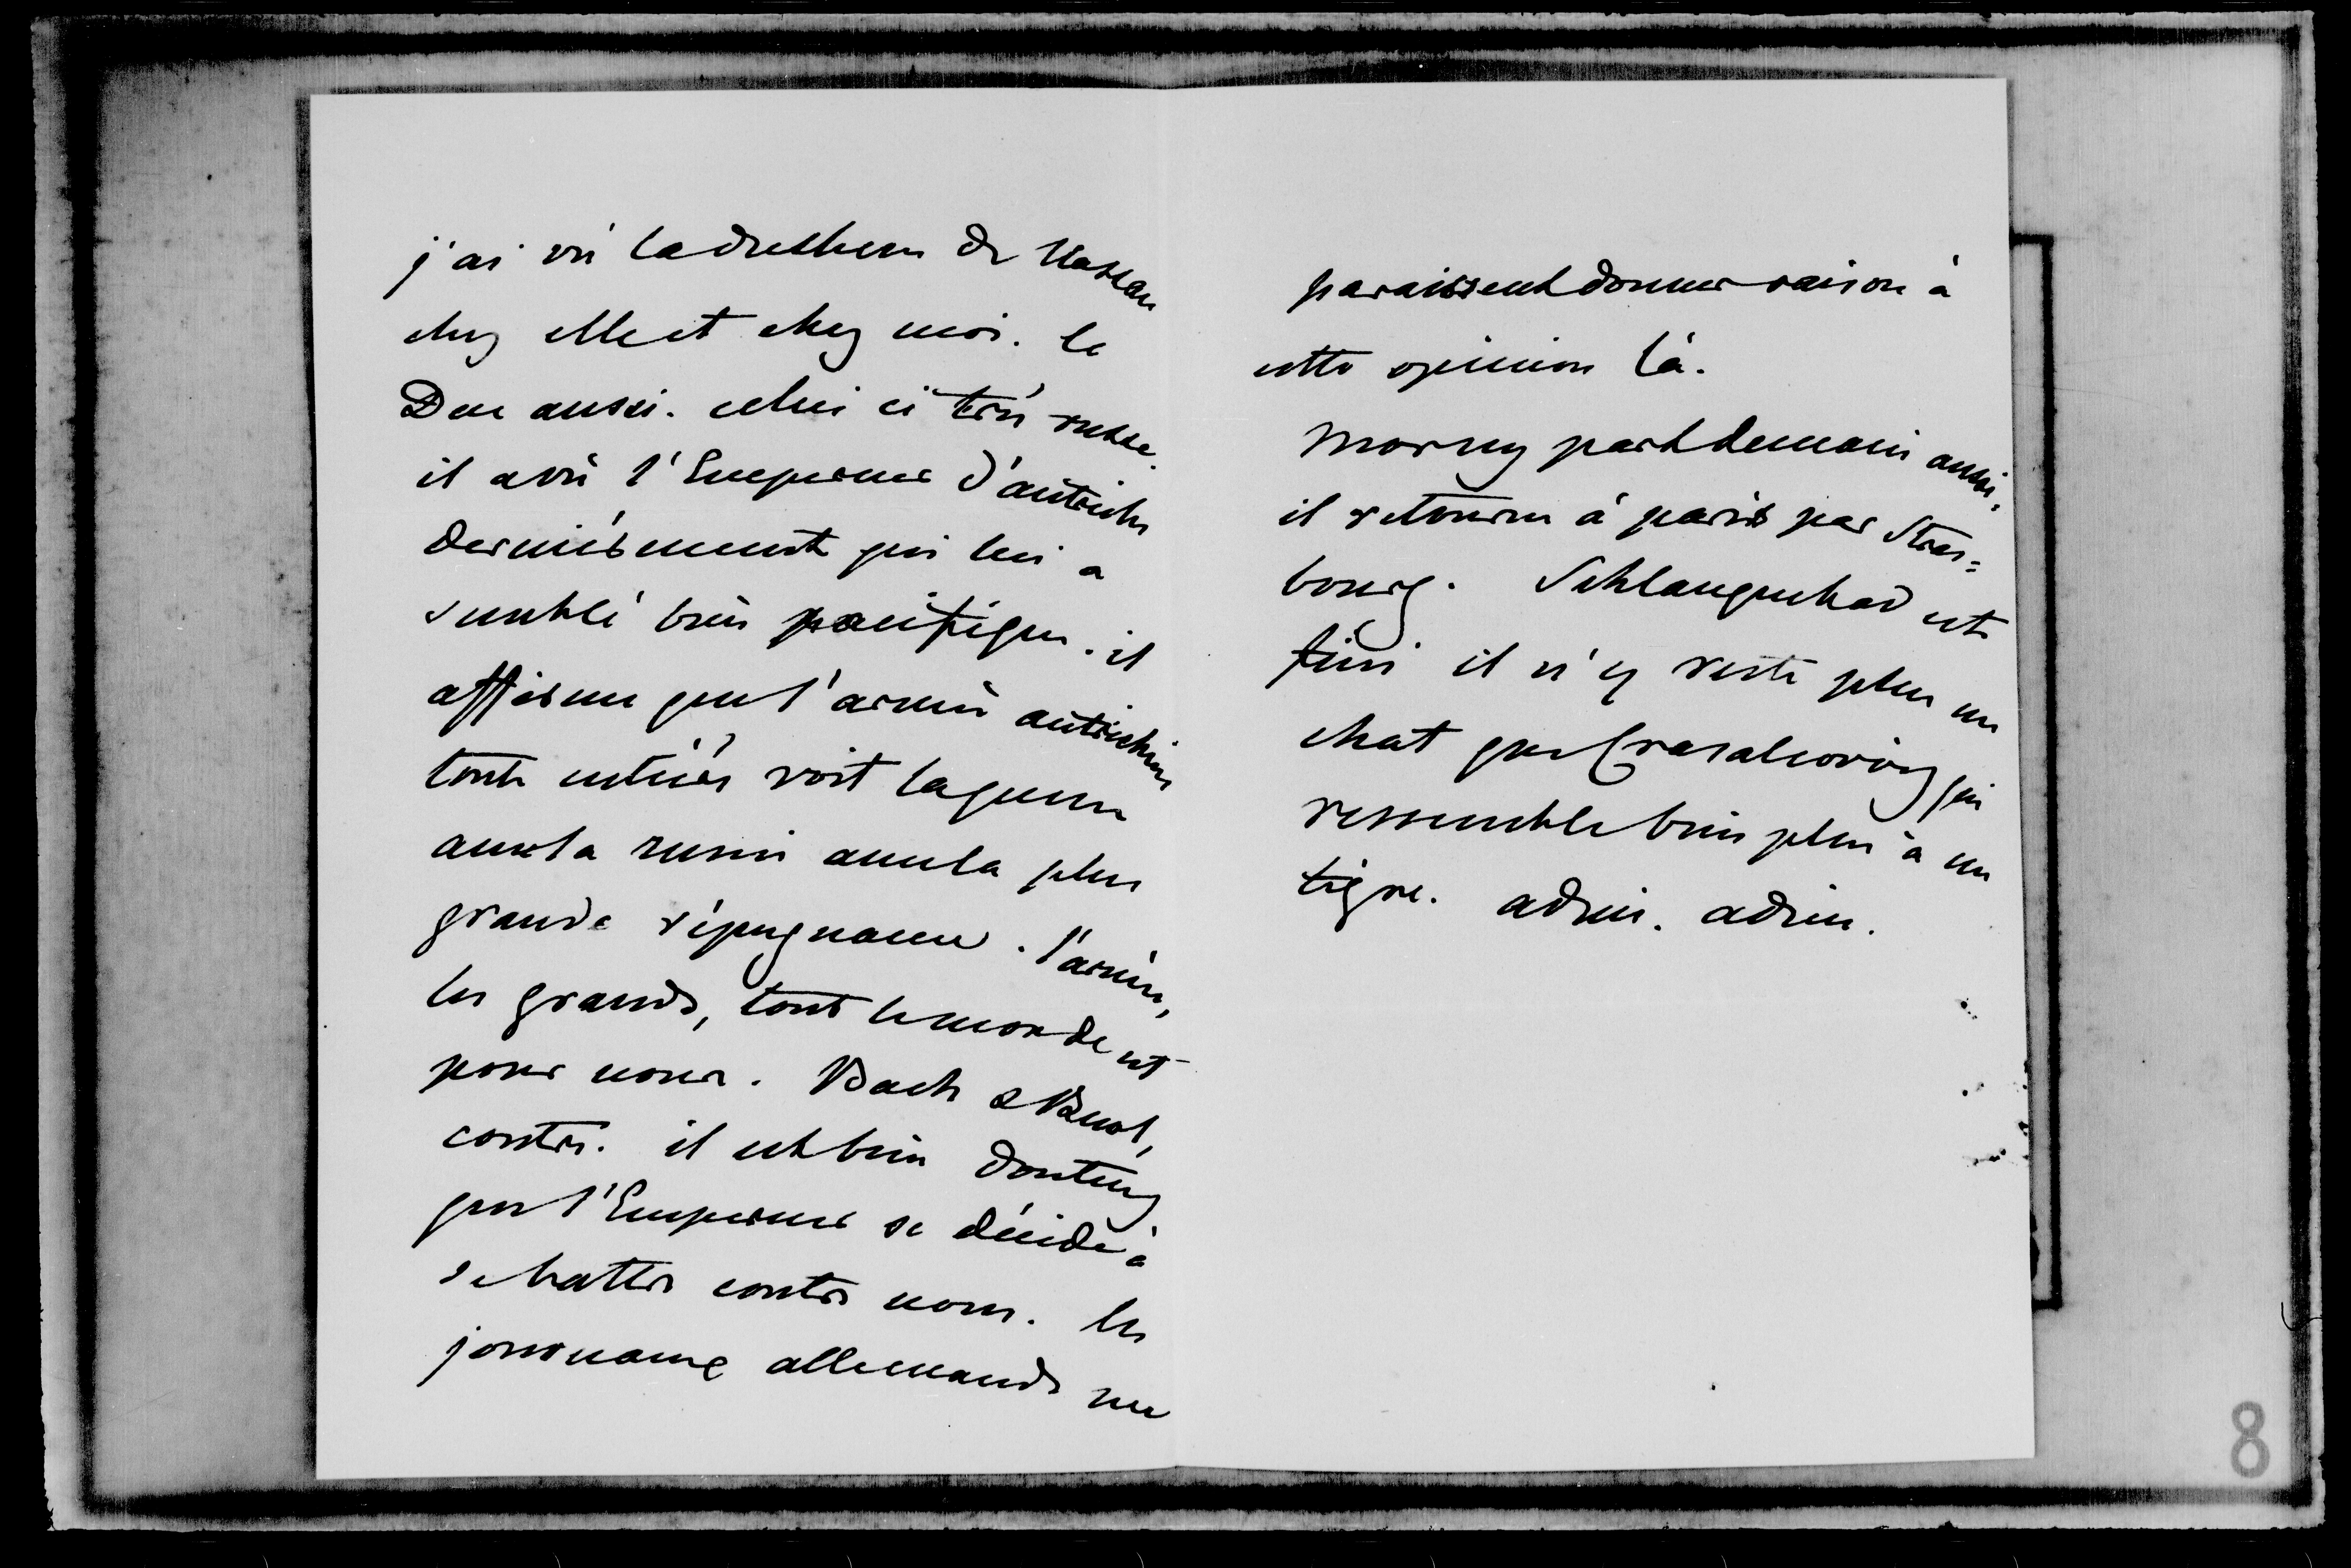 j'ai vu la duchesse de Nassau
chez elle et chez moi. le
Duc aussi. celui ci très russe.
il a vu l'Empereur d'autriche
dernièrement qui lui a
semblé bien pacifique. il
affirme que l'armée autrichienne
toute entière voit la guerre
avec la russie avec la plus
grande répugnance. l'armée,
les grands, tout le monde est
pour nous. Bach & Buol,
contre. il est bien douteux
que l'Empereur se décide à
se battre contre nous. les
journaux allemands me
paraissent donner raison à
cette opinion là.
Morny part demain aussi,
il retourne à paris par Stras=
bourg. Schlangenbad est
fini il n'y reste plus un
chat que qui
ressemble bien plus à un
tigre. adieu. adieu.
8